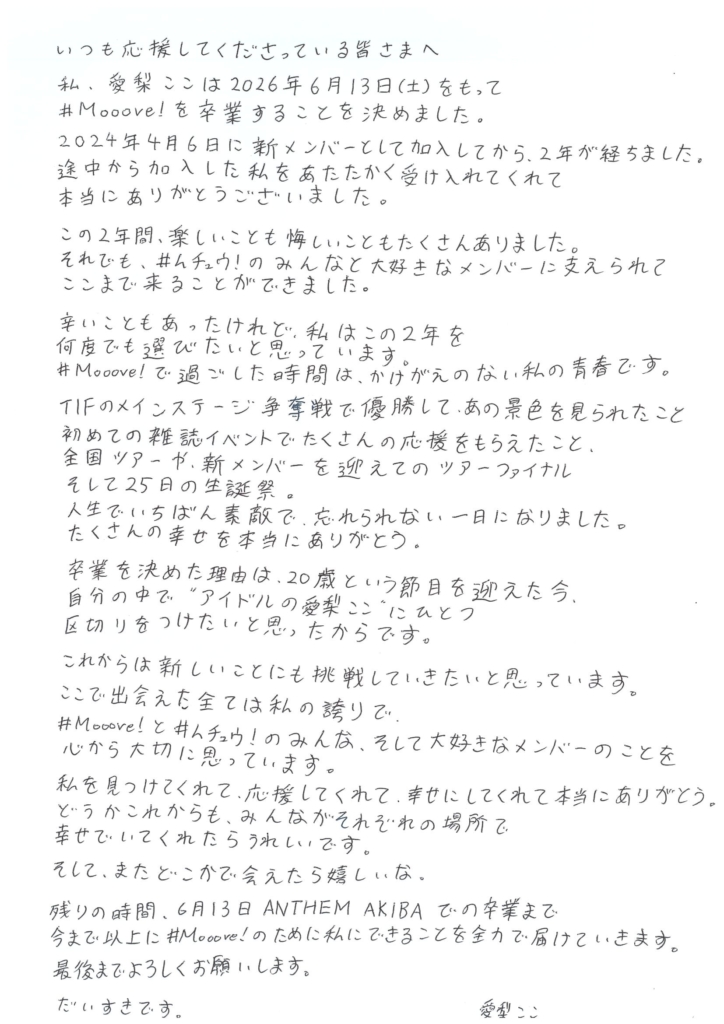 いつも応援してくださっている皆さまへ
私、愛梨ここは2026年6月13日(土)をもって
#Mooove!を卒業することを決めました。
2024年4月6日に新メンバーとして加入してから、2年が経ちました。
途中から加入した私をあたたかく受け入れてくれて
本当にありがとうございました。
この2年間、楽しいことも悔しいこともたくさんありました。
それでも、#ムチュウ!のみんなと大好きなメンバーに支えられて
ここまで来ることができました。
辛いこともあったけれど、私はこの2年を
何度でも選びたいと思っています。
#Mooove!で過ごした時間は、かけがえのない私の青春です。
TIFのメインステージ争奪戦で優勝して、あの景色を見られたこと
初めての雑誌イベントでたくさんの応援をもらえたこと、
全国ツアーや、新メンバーを迎えてのツアーファイナル
そして25日の生誕祭。
人生でいちばん素敵で、忘れられない一日になりました。
たくさんの幸せを本当にありがとう。
卒業を決めた理由は、20歳という節目を迎えた今、
自分の中で"アイドルの愛梨ここ"にひとつ
区切りをつけたいと思ったからです。
これからは新しいことにも挑戦していきたいと思っています。
ここで出会えた全ては私の誇りで、
#Mooove!と#ムチュウ!のみんな、そして大好きなメンバーのことを
心から大切に思っています。
私を見つけてくれて、応援してくれて、幸せにしてくれて本当にありがとう。
どうかこれからも、みんながそれぞれの場所で
幸せでいてくれたらうれしいです。
そして、またどこかで会えたら嬉しいな。
残りの時間、6月13日 ANTHEM AKIBA での卒業まで
今まで以上に#Mooove!のために私にできることを全力で届けていきます。
最後までよろしくお願いします。
だいすきです。
愛梨ここ